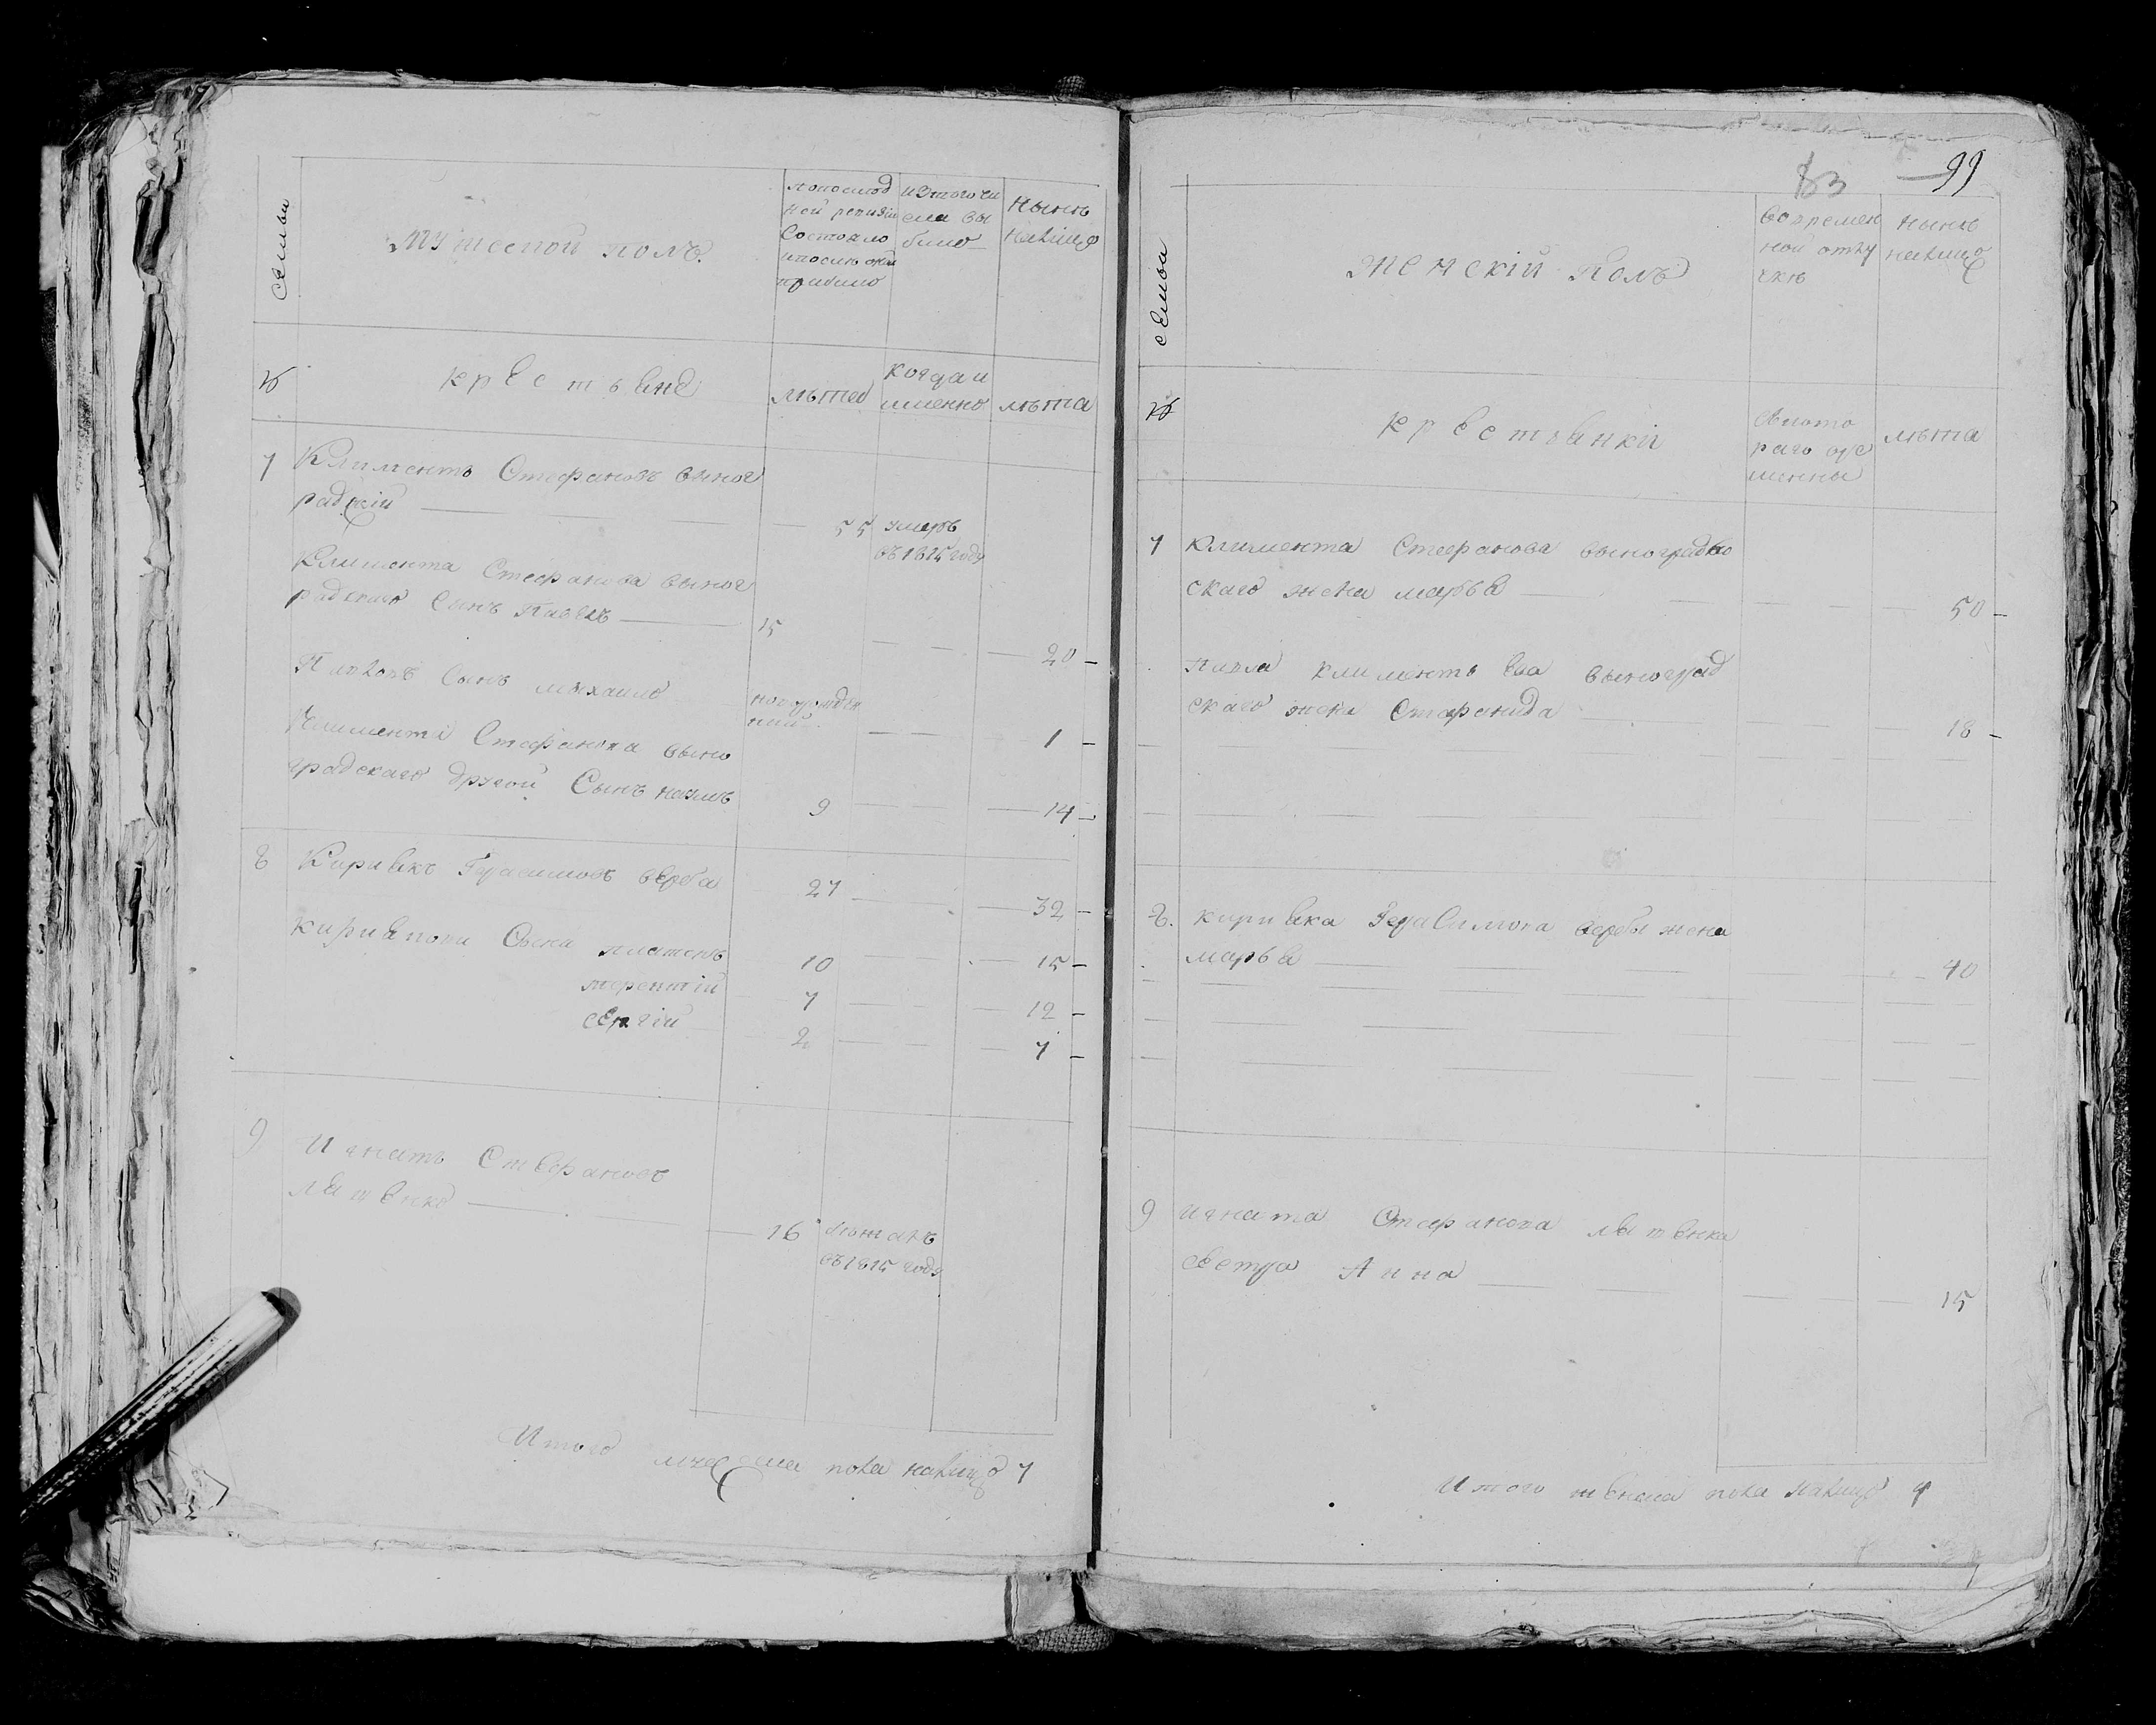 семьи
мужеской полъ.
попослед
ней ревизіи
Состояло
ипосле оной
прибыло
изтого чи
сла вы
было
ныне
налицо
№
крестьяне
лета
когда и
именно
лета
7 Климентъ Стефановъ виног
радскій 55 умеръ
въ 1815 году
Климента Стефанова виног
радскаго Сынъ Павелъ 15 20
Павловъ Сынъ михаило новорожден
ный 1
Климента Стефанова вино
градскаго другой Сынъ наумъ 9 14
8 Кириакъ Герасимовъ верба 27 32
Кириаковы Сыны платонъ 10 15
терентій 7 12
сергій 2 7
9 Игнатъ Стефановъ
16 бежалъ
въ 1815 году
Итого мужеска пола налицо 7
83 99
семьи
женскій полъ
вовремен
ной отлу
чке
ныне
налицо
№
крестьянки
лета
7 Климента Стефанова виноградов
скаго жена марья 50
павла климентьева виноград
скаго жена Стефанида 18
8. кириака Герасимова вербы жена
марья 40
9 игната Стефанова
сестра Анна 15
Итого женска пола налицо 4